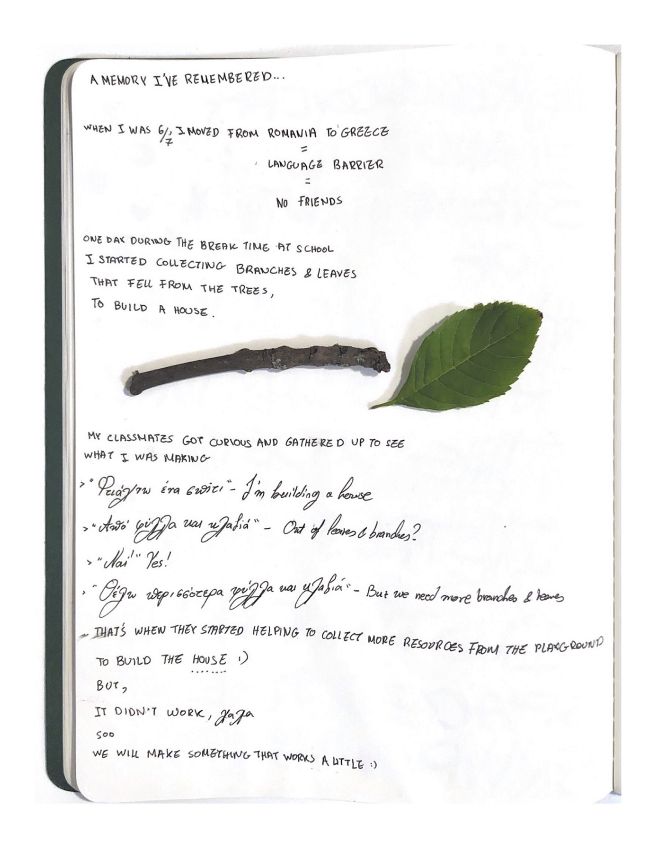 A MEMORY I'VE REMEMBERED...
WHEN I WAS 6/7, I MOVED FROM ROMANIA TO GREECE
=
LANGUAGE BARRIER
=
NO FRIENDS
ONE DAY DURING THE BREAK TIME AT SCHOOL
I STARTED COLLECTING BRANCHES & LEAVES
THAT FELL FROM THE TREES,
TO BUILD A HOUSE.
MY CLASSMATES GOT CURIOUS AND GATHERED UP TO SEE
WHAT I WAS MAKING
> "Φτιάχνω ένα σπίτι" - I'm building a house
> "Από φύλλα και κλαδιά" - Out of leaves & branches?
> "Ναι!" Yes!
> "Θέλω περισσότερα φύλλα και κλαδιά" - But we need more branches & leaves
- THAT'S WHEN THEY STARTED HELPING TO COLLECT MORE RESOURCES FROM THE PLAYGROUND
TO BUILD THE HOUSE :)
BUT,
IT DIDN'T WORK, χαχα
SOO
WE WILL MAKE SOMETHING THAT WORKS A LITTLE :)